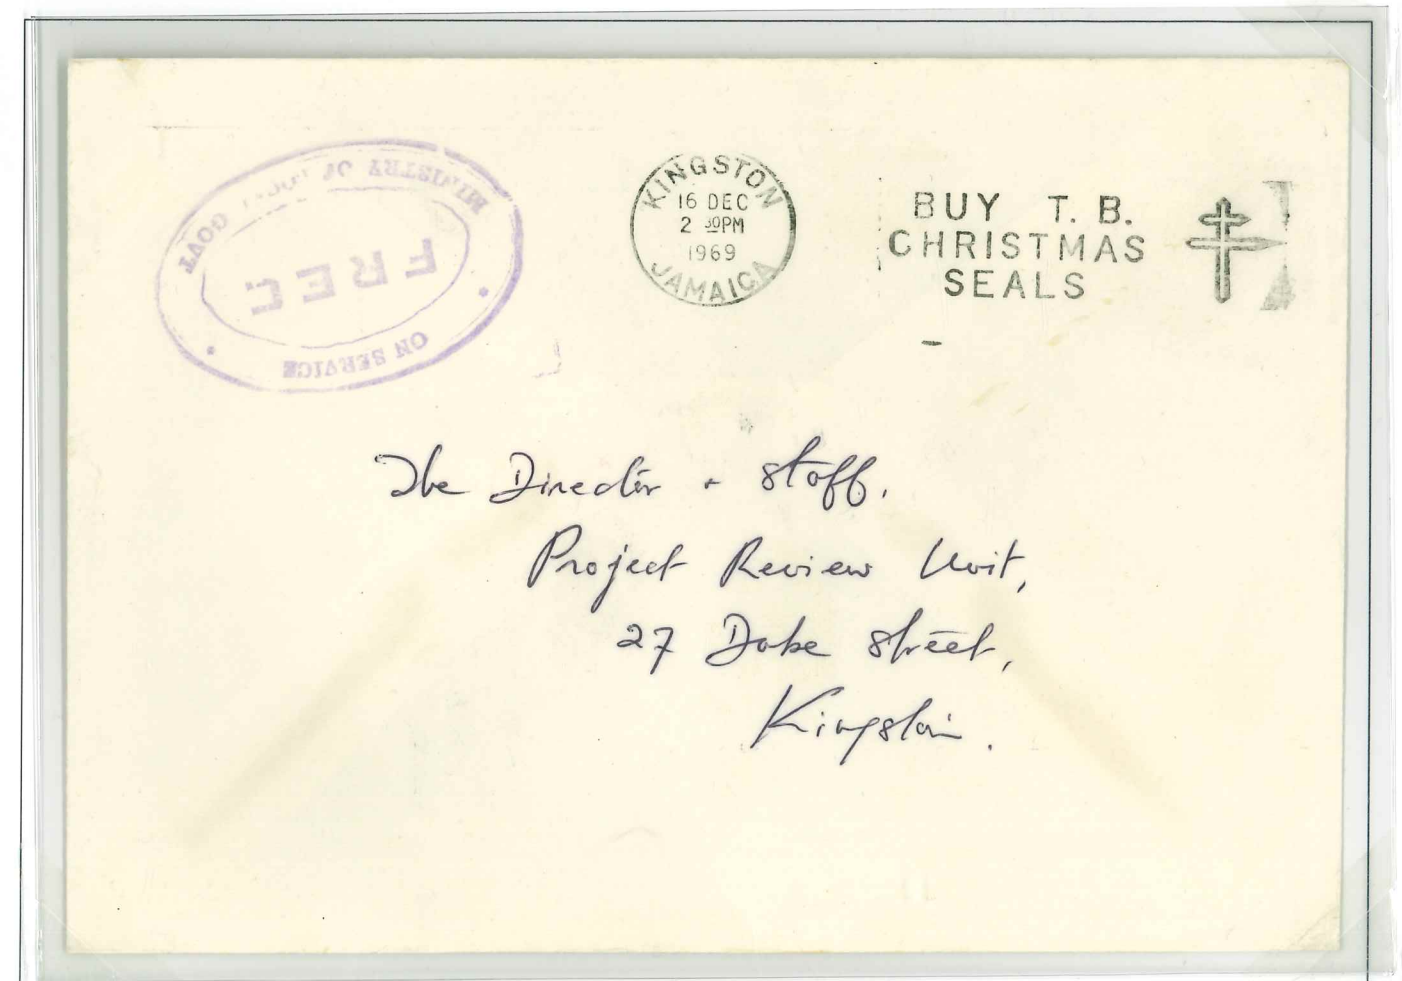 MINISTRY OF GOVT
FREE
ON SERVICE
KINGSTON
16 DEC
2 30PM
1969
JAMAICA
BUY T. B.
CHRISTMAS
SEALS
The Director + Staff,
Project Review Unit,
27 Duke Street,
Kingston.